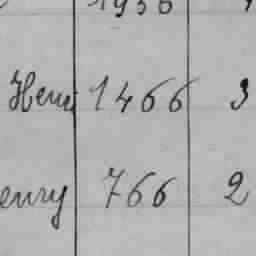 1936
Henri 1466 3
enry 766 2